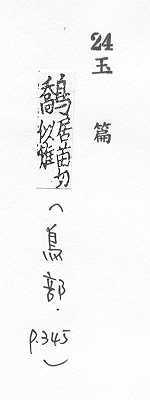 24
玉篇
鷮居苗切
似雉
(鳥部.p.345)